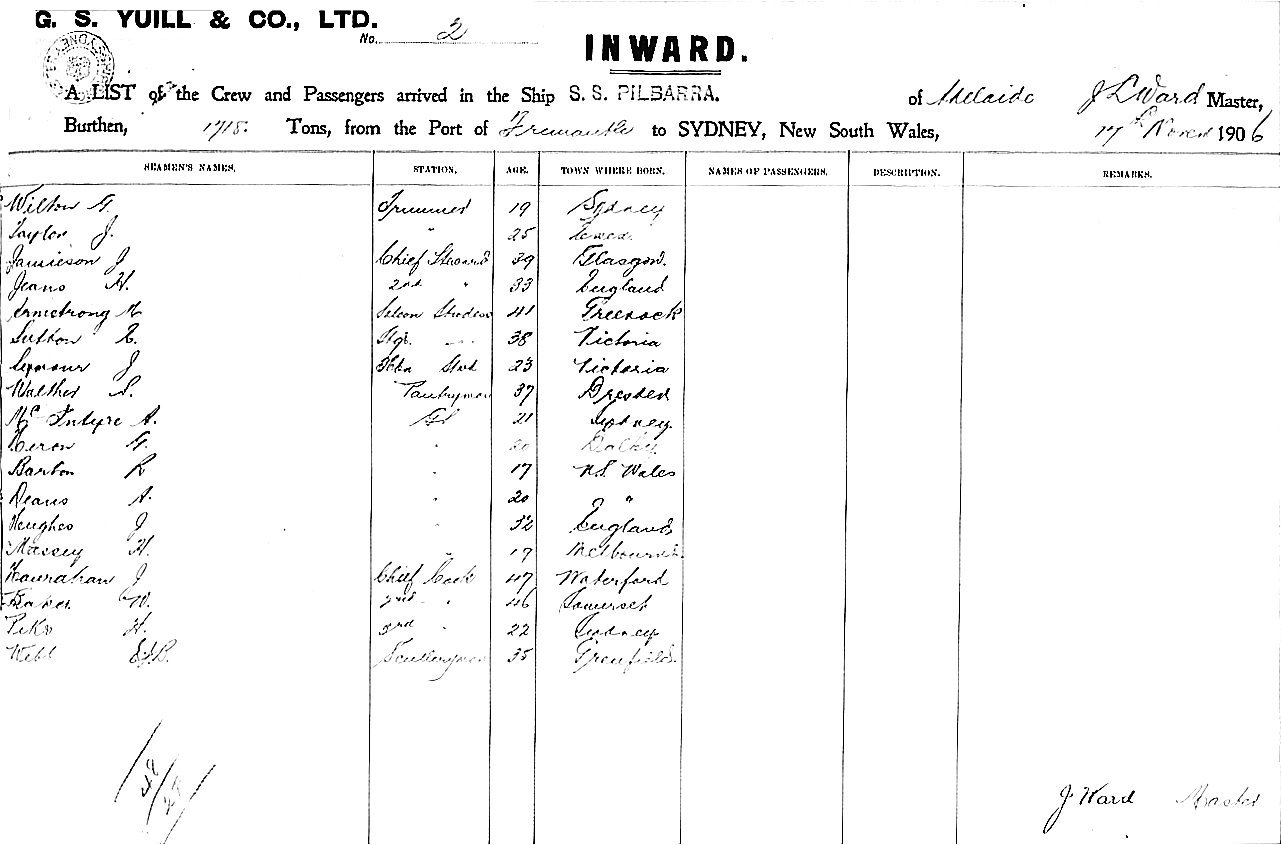 G. S. YUILL & CO., LTD.
No. 2
INWARD.
A LIST of the Crew and Passengers arrived in the Ship S. S. PILBARRA. of Adelaide J L Ward Master,
Burthen, 1718. Tons, from the Port of Fremantle to SYDNEY, New South Wales, 17th Novem 1906
SEAMEN'S NAMES. STATION. AGE. TOWN WHERE BORN. NAMES OF PASSENGERS. DESCRIPTION. REMARKS.
Wilton G. Trimmer 19 Sydney
Taylor J. " 25 Essex.
Jamieson J Chief Steward 39 Glasgow.
Jeans H. 2nd " 33 England
Armstrong M Saloon 41 Greenock
Sutton 38 Victoria
Seymour J Stwd 23 Victoria
Walther S. Pantryman 37 Dresden
McIntyre A. 21 Sydney
Heron G. " 20 Dalby
Barton R " 17 N.S. Wales
Deans A. " 20 " "
Hughes J " 32 England
Massey H. " 19 Melbourne.
Hanrahan J Chief Cook 47 Waterford
Baker W. 2nd " 46 Somerset
Pike H. 3rd " 22 Sydney
Webb E.J.B. Sculleryman 35 Grenfield.
48/28
J Ward Master